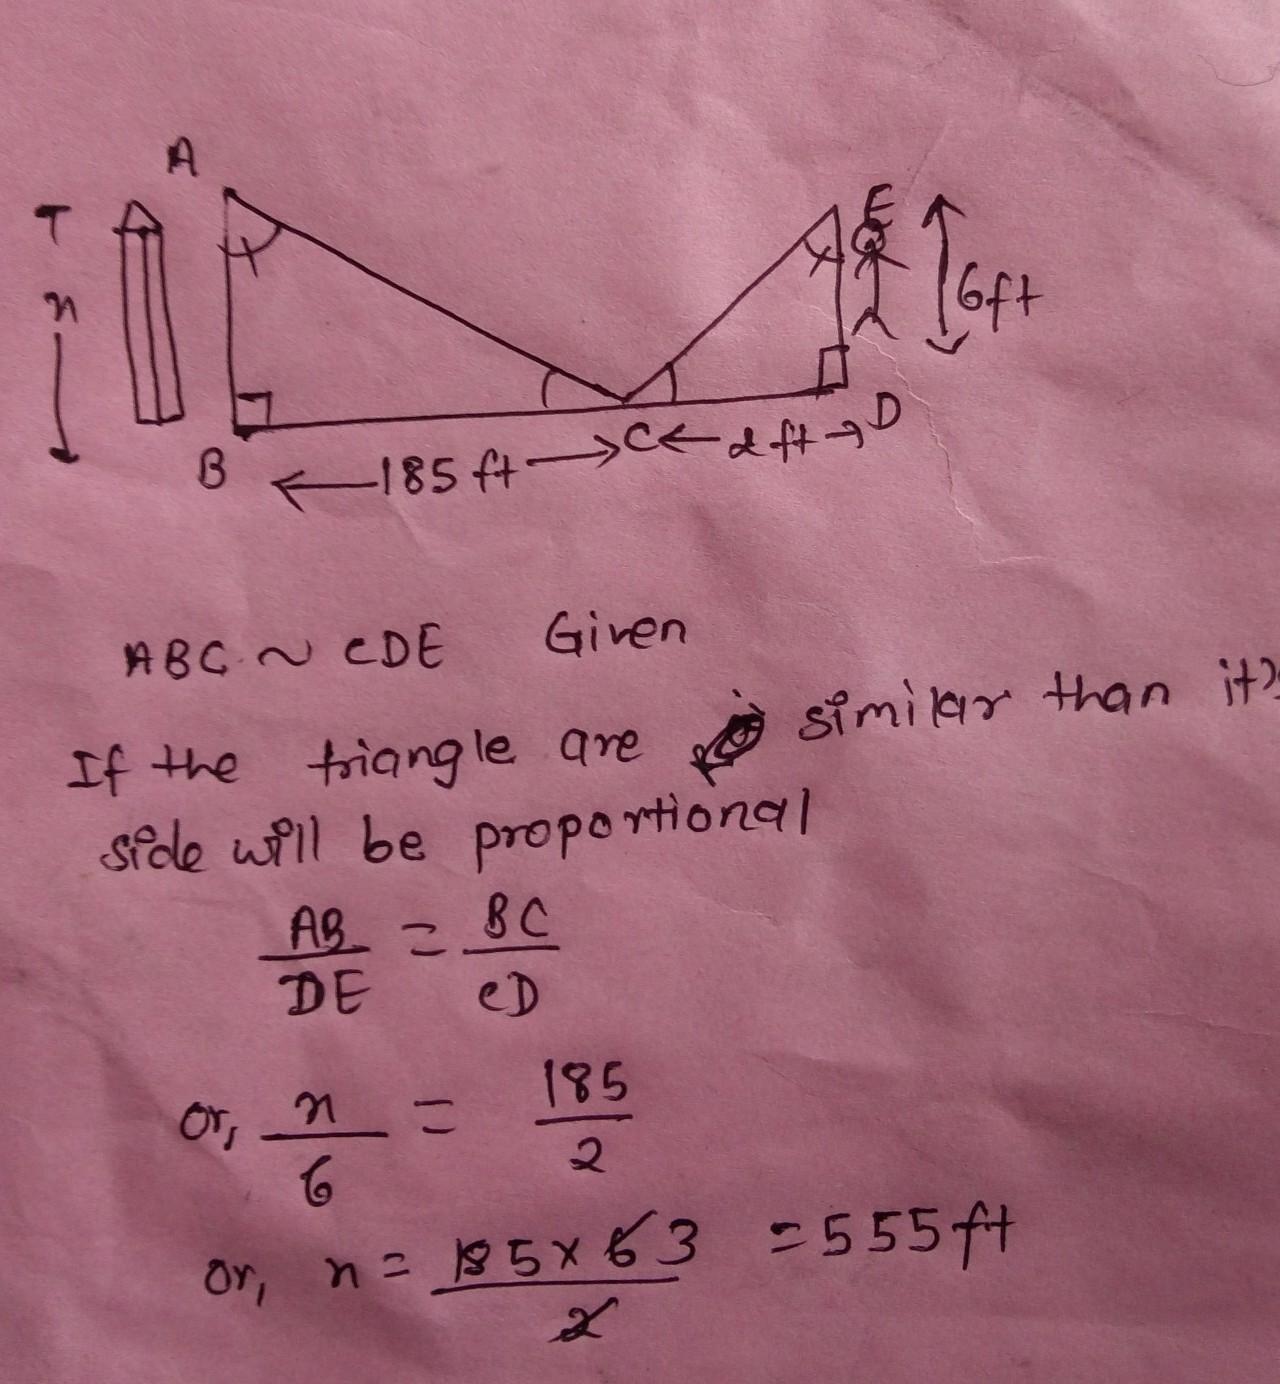 A
T
E
n
6ft
D
B
185 ft
C
2 ft
ABC ~ CDE Given
If the triangle are similar than it's
side will be proportional
AB/DE = BC/CD
or, n/6 = 185/2
or, n = 185 x 6 3 / 2 = 555 ft